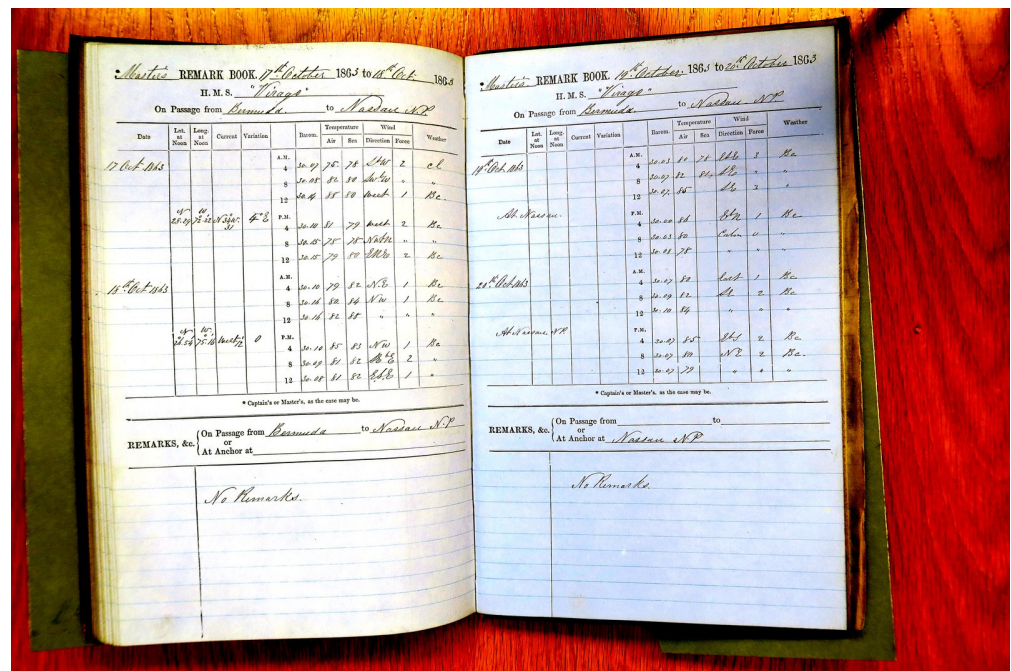 Master's REMARK BOOK. 17th October 1863 to 18th Oct 1863
H. M. S. "Virago"
On Passage from Bermuda. to Nassau N.P.
Date Lat. at Noon Long. at Noon Current Variation Barom. Temperature Air Sea Wind Direction Force Weather
17 Oct 1863 A.M.
4 30.07 75 78 2
8 30.08 82 80 " "
12 30.14 88 80 West 1 Bc
N W P.M.
4° E
4 30.10 81 79 West 2 Bc
8 30.15 78 78 " "
12 30.15 79 80 2 Bc
18th Oct 1863 A.M.
4 30.10 79 82 N.E 1 Bc
8 30.16 80 84 N W 1 Bc
12 30.16 82 85 " " "
N W P.M.
26.54 75.16 West 12 0
4 30.10 85 83 N W 1 Bc
8 30.09 81 82 2 "
12 30.08 81 82 E.b.E 1 "
* Captain's or Master's, as the case may be.
REMARKS, &c. On Passage from Bermuda to Nassau N.P.
or
At Anchor at
No Remarks.
Master's REMARK BOOK. 19th October. 1863 to 20th October 1863
H. M. S. "Virago"
On Passage from Bermuda. to Nassau N.P.
Date Lat. at Noon Long. at Noon Current Variation Barom. Temperature Air Sea Wind Direction Force Weather
19th Oct 1863 A.M.
4 30.03 80 78 3 Bc
8 30.07 82 81 S.E " "
12 30.07 85 3 "
At Nassau. P.M.
4 30.00 86 1 Bc
8 30.03 80 Calm 0 "
12 30.08 78 " "
20th Oct 1863 A.M.
4 30.07 80 East 1 Bc
8 30.09 82 2 Bc
12 30.10 84 " " "
At Nassau N.P. P.M.
4 30.07 85 2 Bc
8 30.07 80 N E 2 Bc
12 30.07 79 " " "
* Captain's or Master's, as the case may be.
REMARKS, &c. On Passage from to
or
At Anchor at Nassau N.P.
No Remarks.